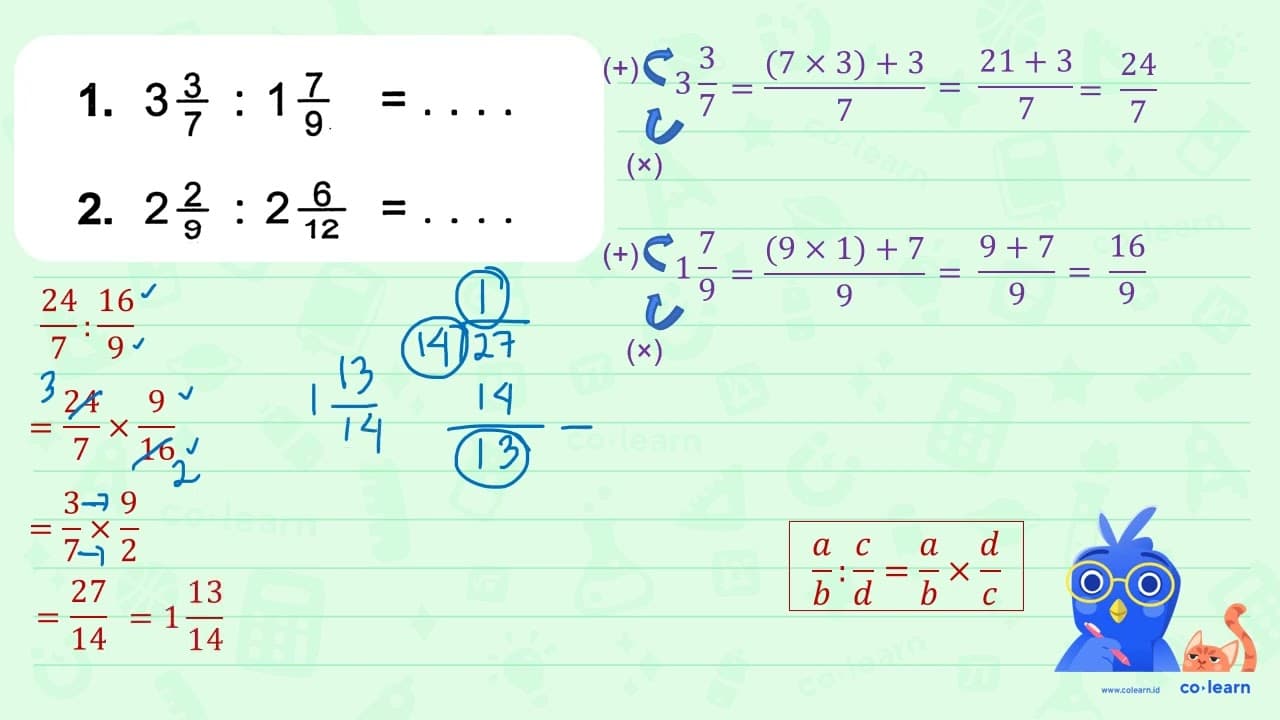 1. 3 3/7 : 1 7/9 = . . . .
2. 2 2/9 : 2 6/12 = . . . .
(+) 3 3/7 = (7 × 3) + 3/7 = 21 + 3/7 = 24/7
(×)
(+) 1 7/9 = (9 × 1) + 7/9 = 9 + 7/9 = 16/9
(×)
24/7 : 16/9
3
= 24/7 × 9/16
2
= 3/7 × 9/2
= 27/14 = 1 13/14
1 13/14
1
14 27
14
13 −
a/b : c/d = a/b × d/c
www.colearn.id
co·learn